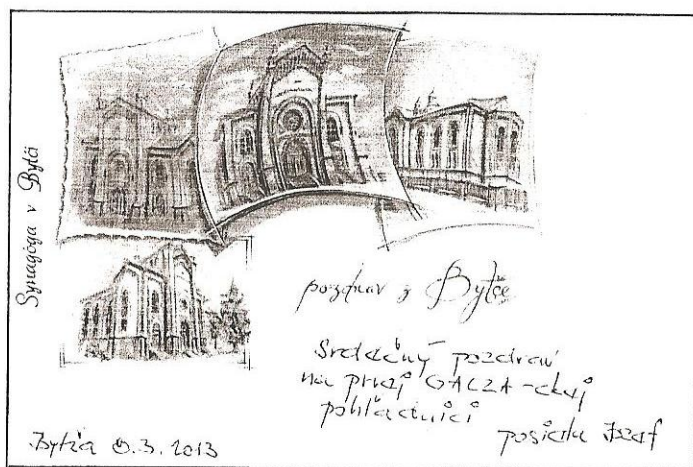 Synagóga v Bytči
pozdrav z Bytče
Srdečný pozdrav
na prvej GALZA-ckej
pohľadnici
posiela Jozef
Bytča 8.3.2013